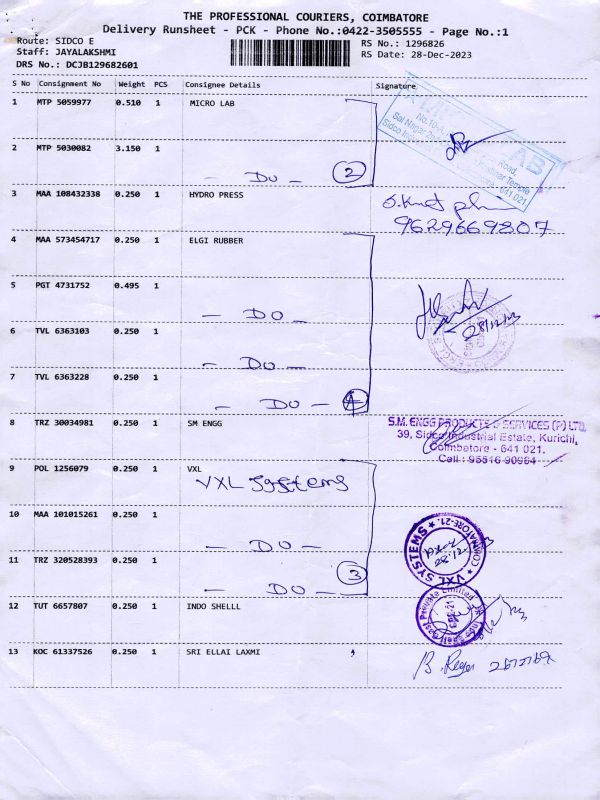 THE PROFESSIONAL COURIERS, COIMBATORE
Delivery Runsheet - PCK - Phone No.:0422-3505555 - Page No.:1
Route: SIDCO E
RS No.: 1296826
Staff: JAYALAKSHMI
RS Date: 28-Dec-2023
DRS No.: DCJB129682601
S No Consignment No Weight PCS Consignee Details Signature
1 MTP 5059977 0.510 1 MICRO LAB
2 MTP 5030082 3.150 1
- DO - 2
3 MAA 108432338 0.250 1 HYDRO PRESS
9629669807
4 MAA 573454717 0.250 1 ELGI RUBBER
5 PGT 4731752 0.495 1
- DO -
28/12/23
6 TVL 6363103 0.250 1
- DO -
7 TVL 6363228 0.250 1
- DO - 4
8 TRZ 30034981 0.250 1 SM ENGG
S.M. ENGG PRODUCTS & SERVICES (P) LTD,
39, Sidco Industrial Estate, Kurichi,
Coimbatore - 641 021.
Cell : 95516 90984
9 POL 1256079 0.250 1 VXL
VXL Systems
10 MAA 101015261 0.250 1
- DO -
VXL SYSTEMS * COIMBATORE-21. *
11 TRZ 320528393 0.250 1
- DO - 3
12 TUT 6657807 0.250 1 INDO SHELLL
13 KOC 61337526 0.250 1 SRI ELLAI LAXMI